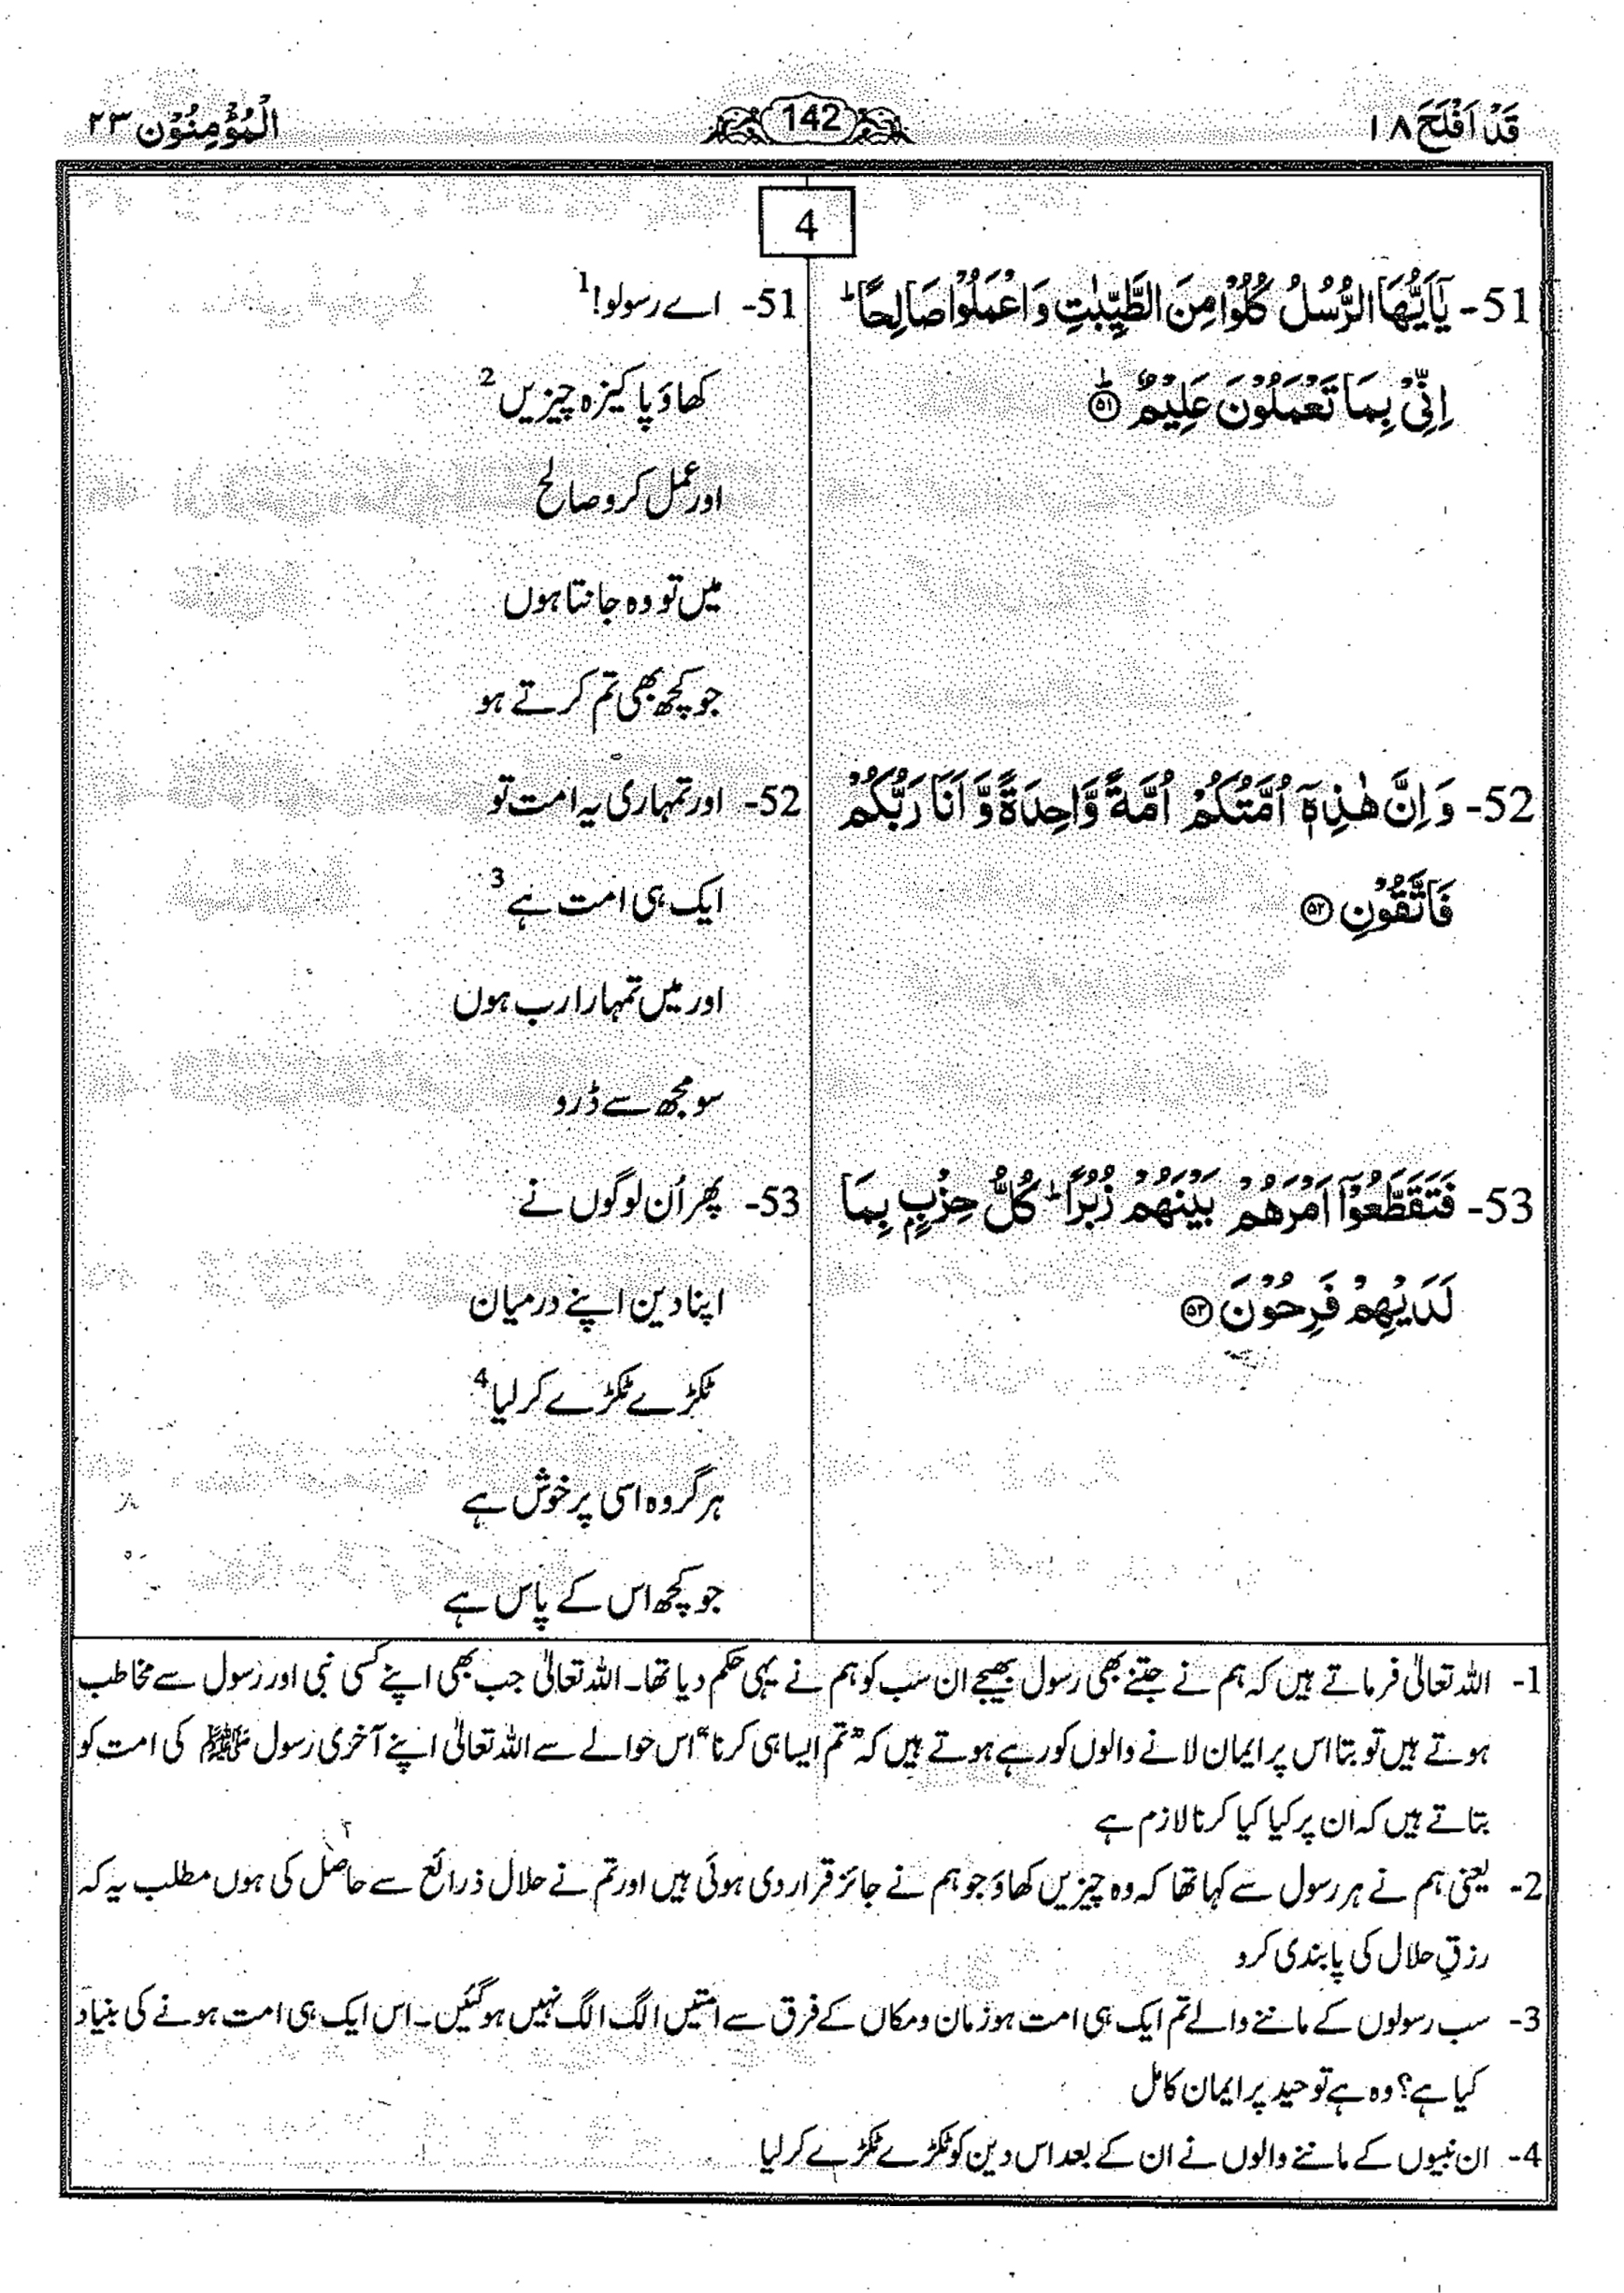 قَدْ اَفْلَحَ ١٨
142
الْمُؤْمِنُوْن ٢٣
4
51- يٰۤاَيُّهَا الرُّسُلُ كُلُوْا مِنَ الطَّيِّبٰتِ وَ اعْمَلُوْا صَالِحًا ؕ
اِنِّیْ بِمَا تَعْمَلُوْنَ عَلِيْمٌ ؕ ۝۵۱
51- اے رسولو!1
کھاؤ پاکیزہ چیزیں 2
اور عمل کرو صالح
میں تو وہ جانتا ہوں
جو کچھ بھی تم کرتے ہو
52- وَ اِنَّ هٰذِهٖۤ اُمَّتُكُمْ اُمَّةً وَّاحِدَةً وَّ اَنَا رَبُّكُمْ
فَاتَّقُوْنِ ۝۵۲
52- اور تمہاری یہ امت تو
ایک ہی امت ہے 3
اور میں تمہارا رب ہوں
سو مجھ سے ڈرو
53- فَتَقَطَّعُوْۤا اَمْرَهُمْ بَيْنَهُمْ زُبُرًا ؕ كُلُّ حِزْبٍۭ بِمَا
لَدَيْهِمْ فَرِحُوْنَ ۝۵۳
53- پھر اُن لوگوں نے
اپنا دین اپنے درمیان
ٹکڑے ٹکڑے کر لیا 4
ہر گروہ اسی پر خوش ہے
جو کچھ اس کے پاس ہے
1- اللہ تعالٰی فرماتے ہیں کہ ہم نے جتنے بھی رسول بھیجے ان سب کو ہم نے یہی حکم دیا تھا۔ اللہ تعالٰی جب بھی اپنے کسی نبی اور رسول سے مخاطب
ہوتے ہیں تو بتا اس پر ایمان لانے والوں کو رہے ہوتے ہیں کہ "تم ایسا ہی کرنا" اس حوالے سے اللہ تعالٰی اپنے آخری رسول ﷺ کی امت کو
بتاتے ہیں کہ ان پر کیا کیا کرنا لازم ہے
2- یعنی ہم نے ہر رسول سے کہا تھا کہ وہ چیزیں کھاؤ جو ہم نے جائز قرار دی ہوئی ہیں اور تم نے حلال ذرائع سے حاصل کی ہوں مطلب یہ کہ
رزقِ حلال کی پابندی کرو
3- سب رسولوں کے ماننے والے تم ایک ہی امت ہو زمان و مکاں کے فرق سے امتیں الگ الگ نہیں ہو گئیں۔ اس ایک ہی امت ہونے کی بنیاد
کیا ہے؟ وہ ہے توحید پر ایمان کامل
4- ان نبیوں کے ماننے والوں نے ان کے بعد اس دین کو ٹکڑے ٹکڑے کر لیا